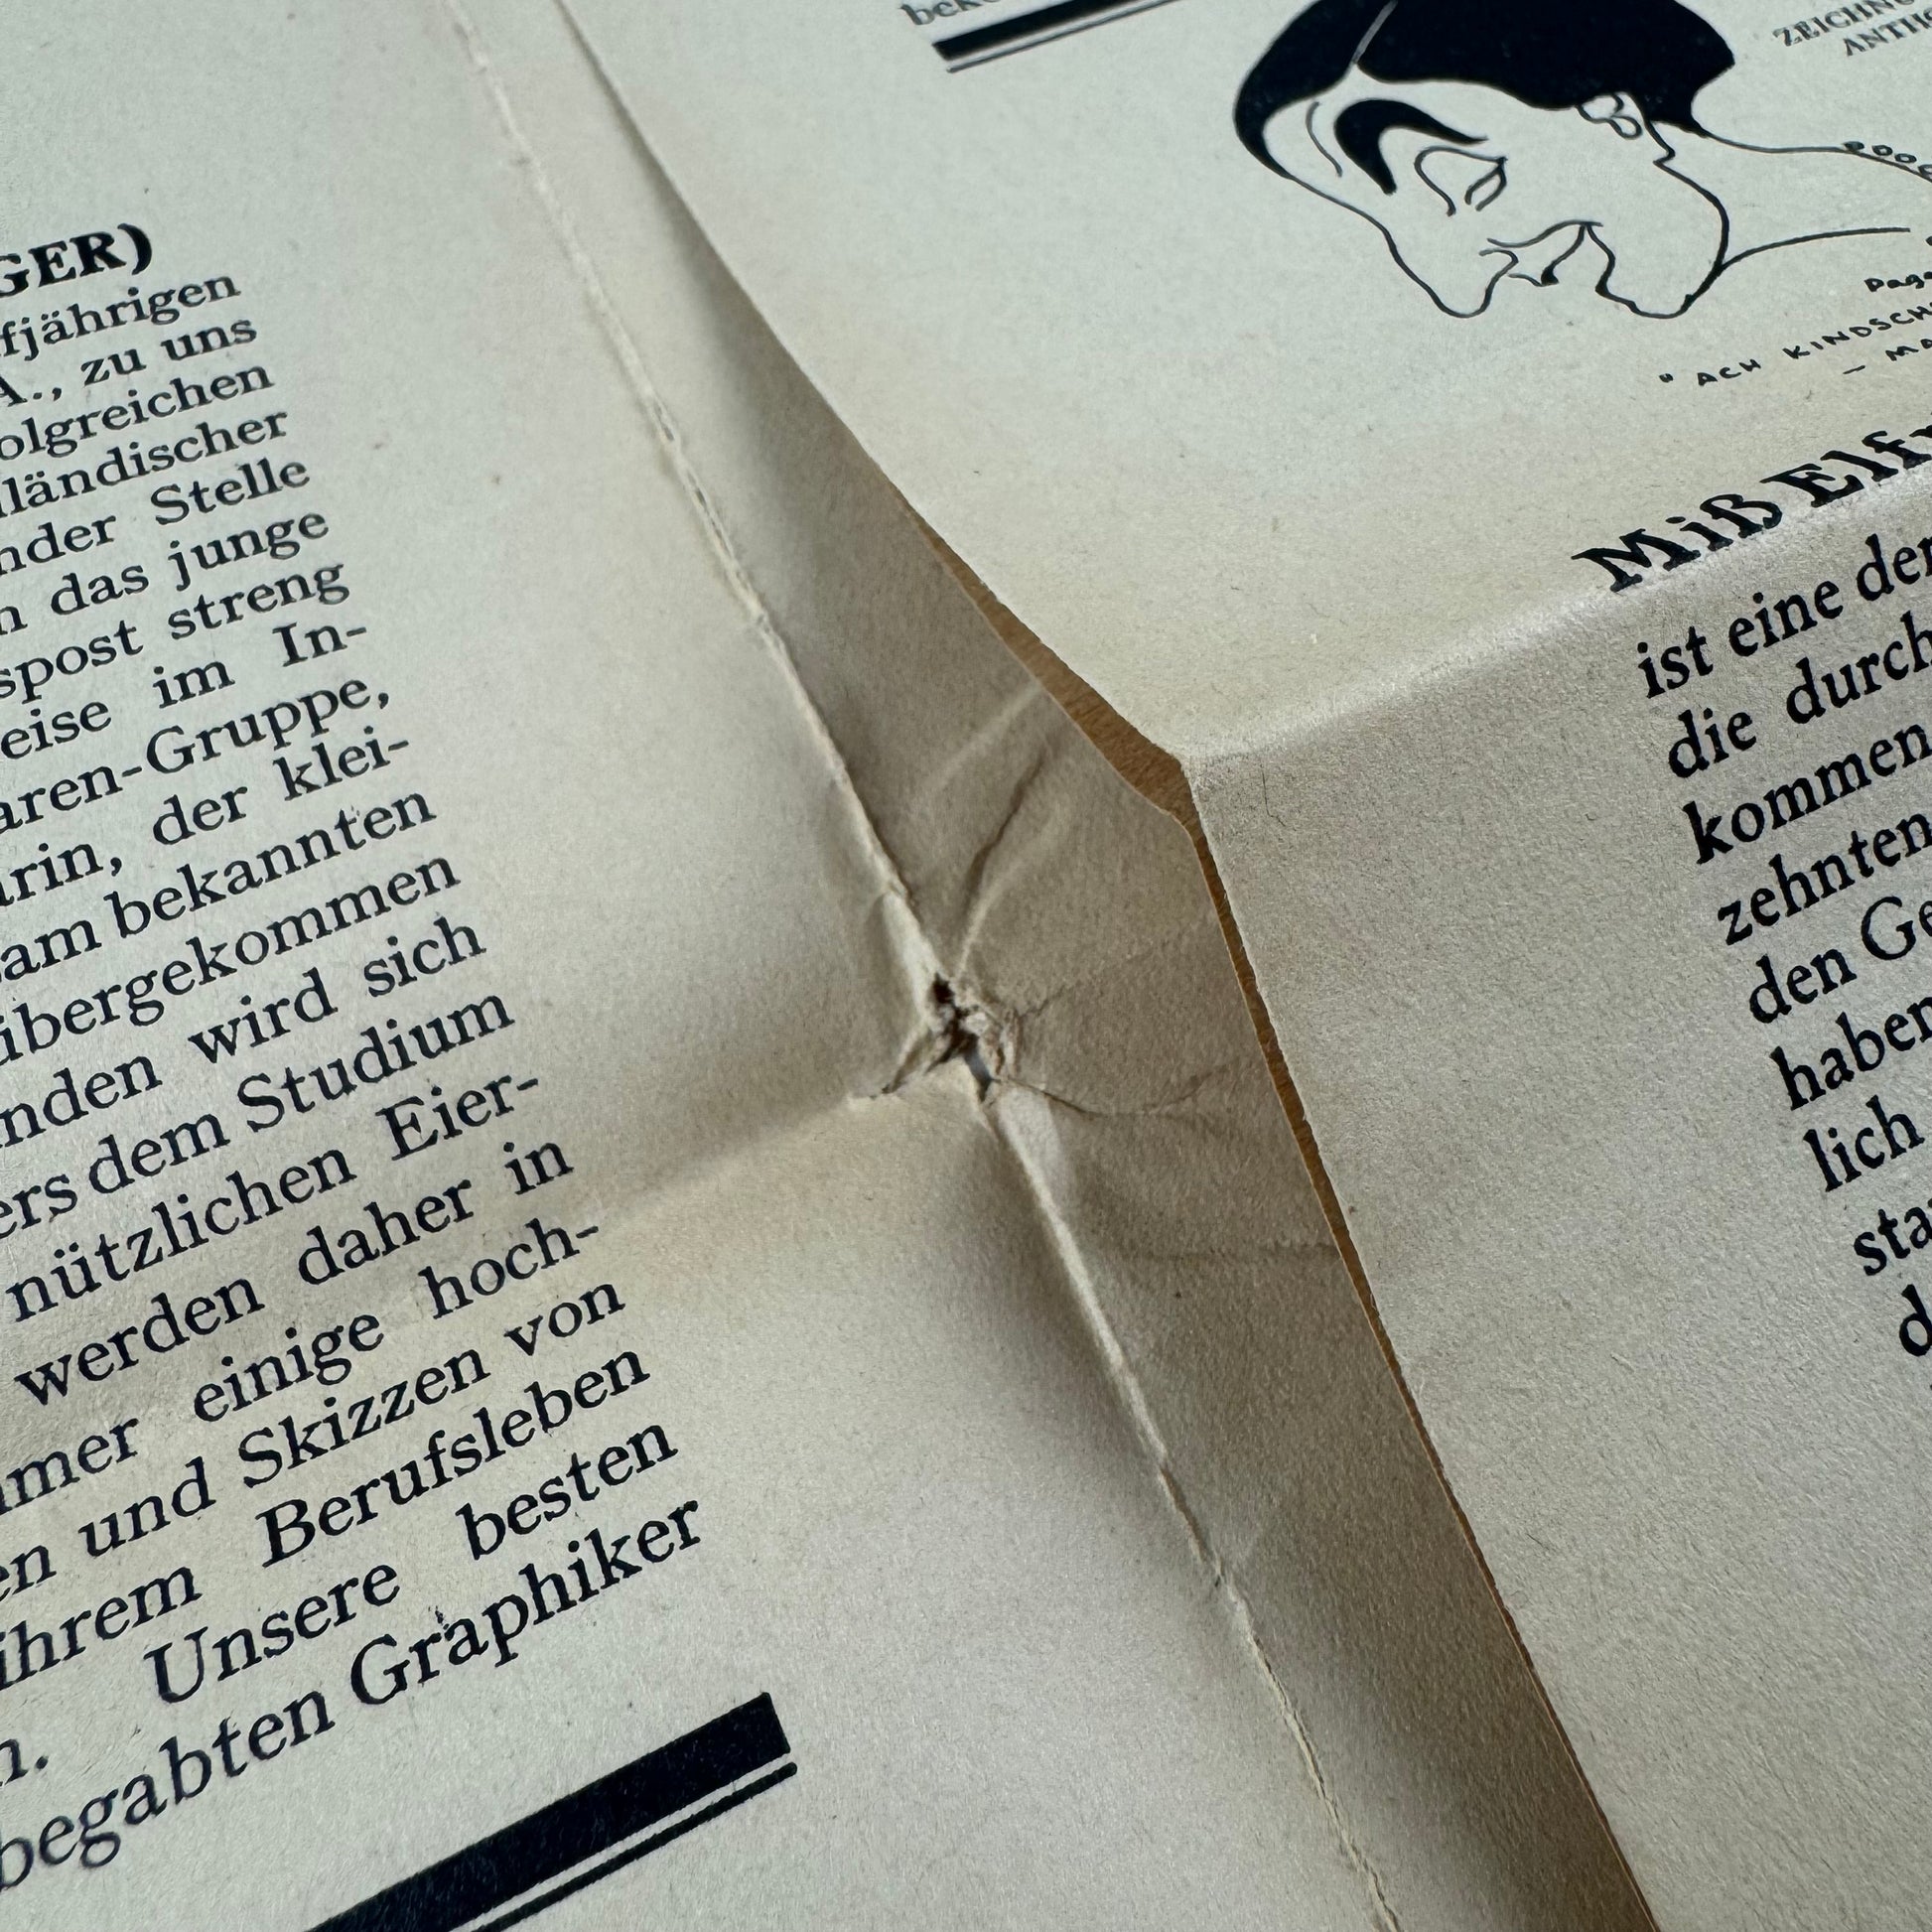 GER)
fjährigen
A., zu uns
olgreichen
ländischer
nder Stelle
n das junge
spost streng
eise im In-
aren-Gruppe,
arin, der klei-
sam bekannten
übergekommen
nden wird sich
ers dem Studium
nützlichen Eier-
werden daher in
mmer einige hoch-
en und Skizzen von
ihrem Berufsleben
n. Unsere besten
begabten Graphiker
ZEICHN
ANTH
Page
" ACH KINDSCH
— MA
Miß Elf
ist eine der
die durch
kommen
zehnten
den Ge
haben
lich
sta
d